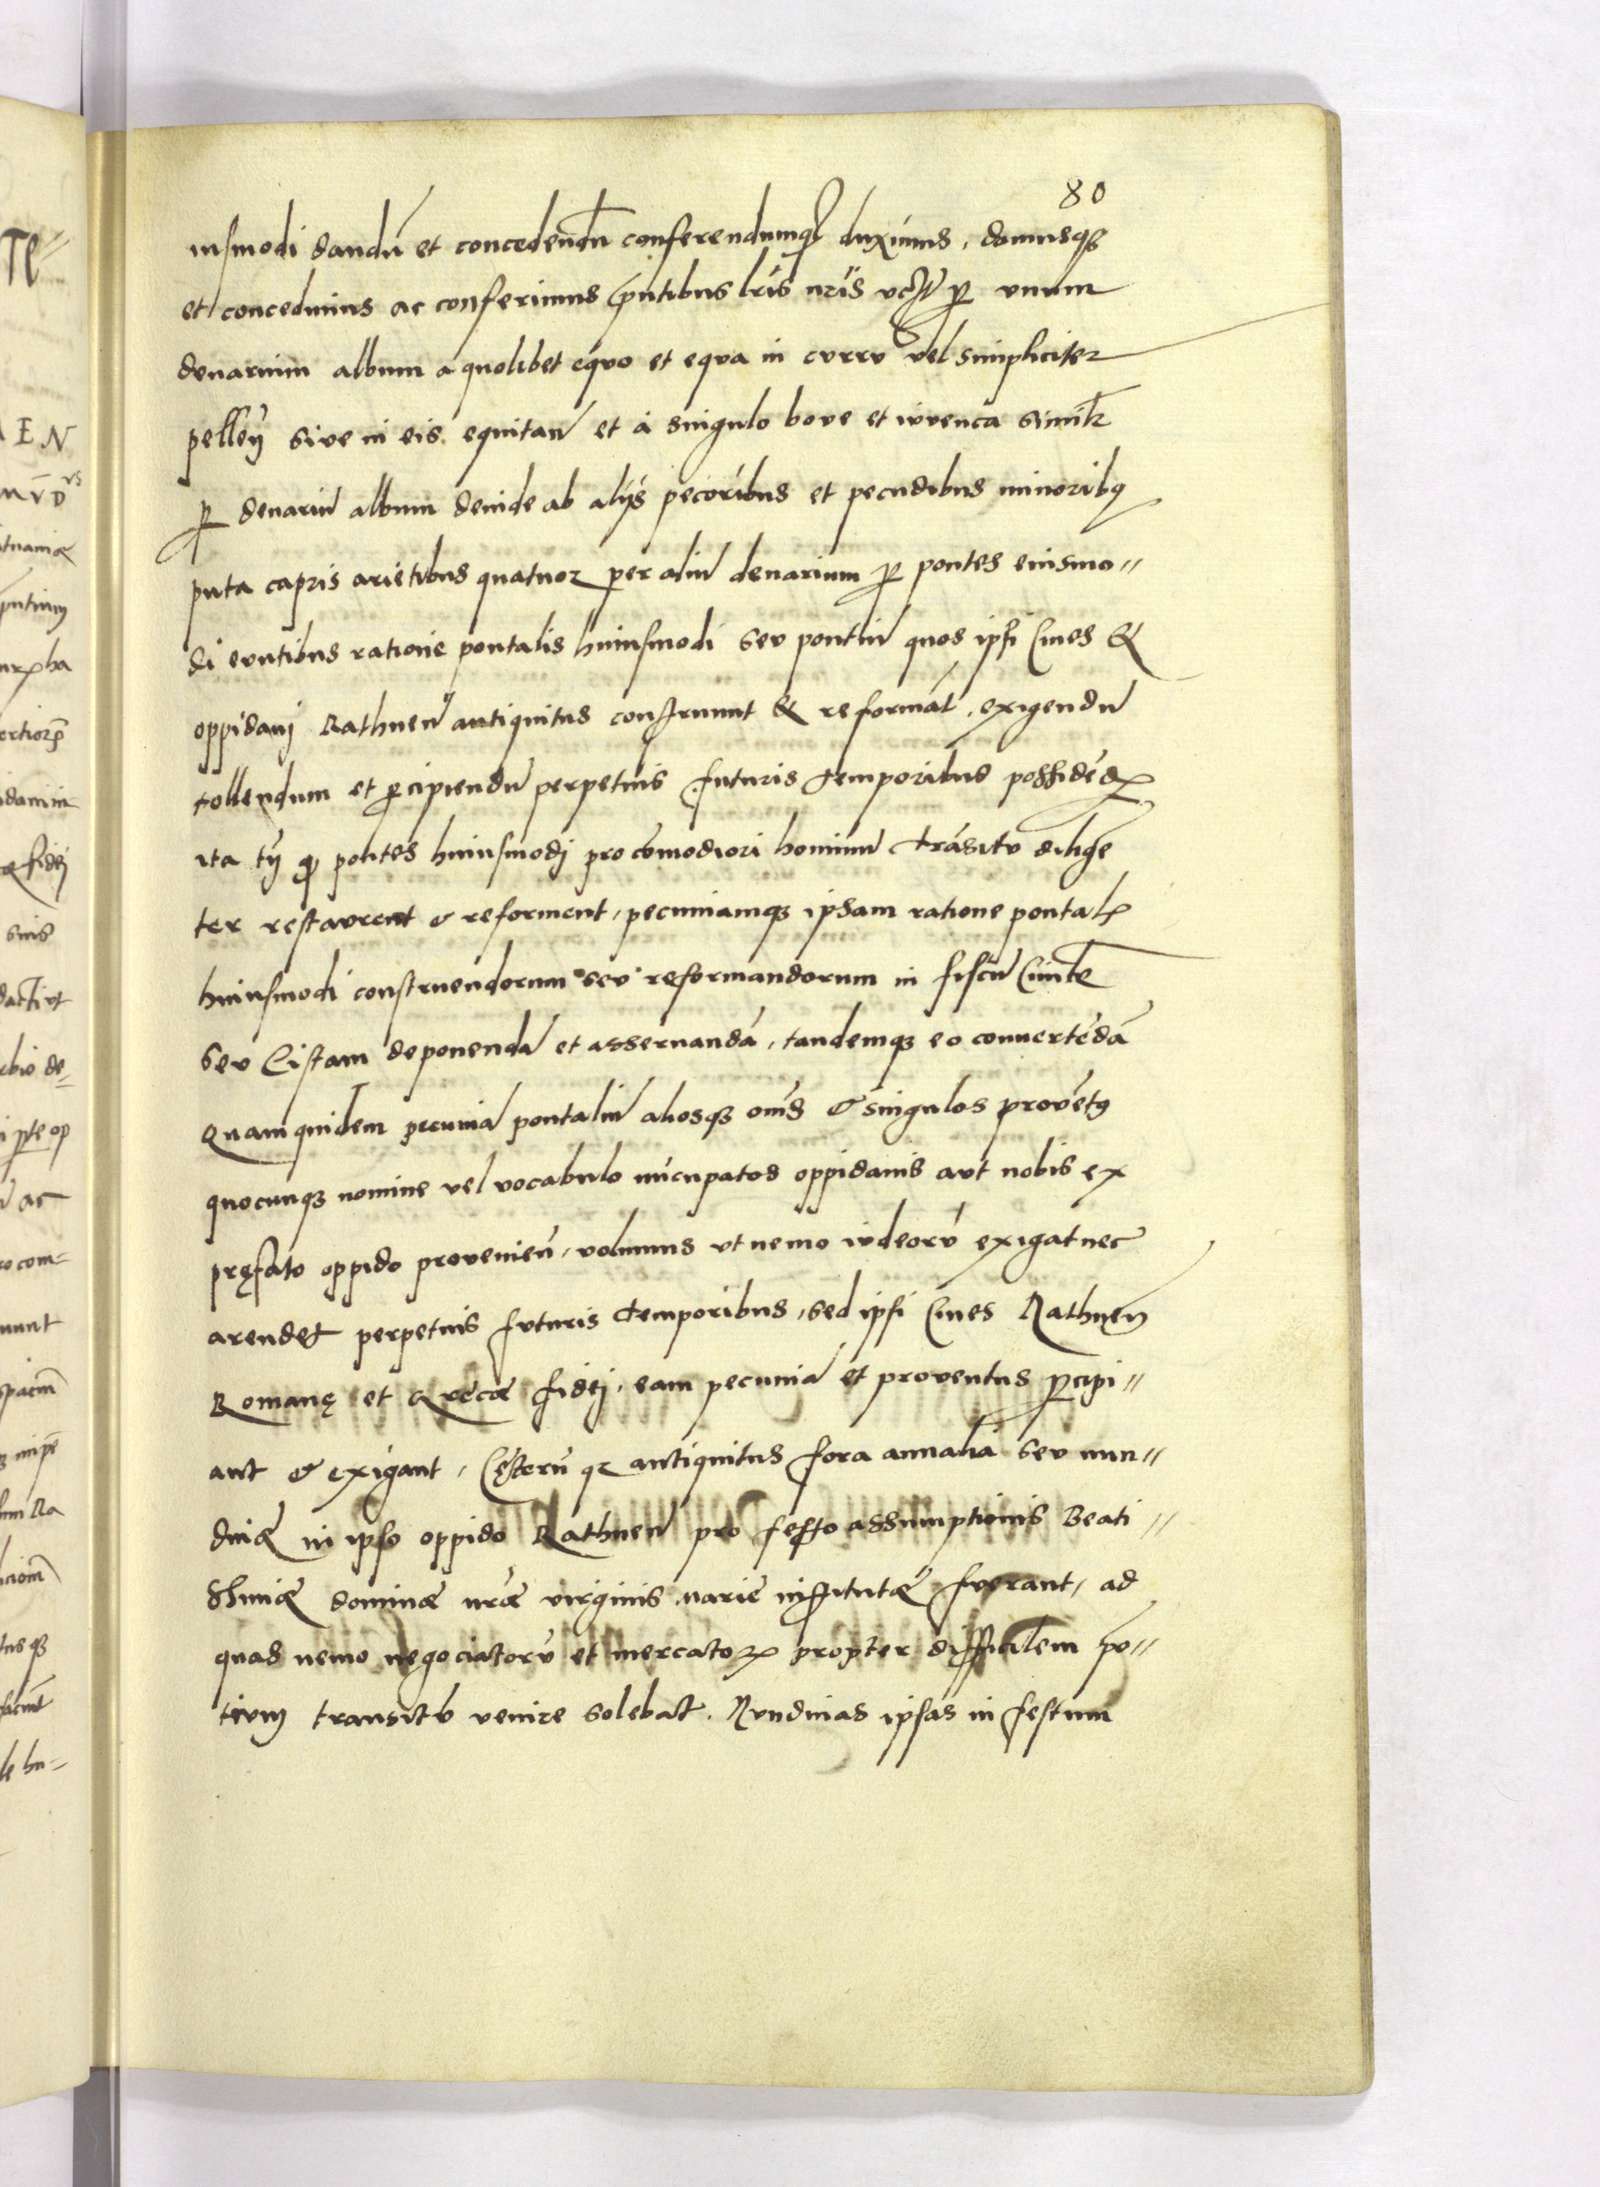 80
iusmodi dandũ et concedendũ conferendumq̃ duximus, damusq;
et concedimus ac conferimus p̃ntibus lr̃is nr̃is vcz̃ per vnum
denarium album a quolibet equo et equa in curru vel simpliciter
pelleñ sive in eis equitañ et à singulo bove et iuvenca simil̃r
per denariũ album deinde ab alijs pecoribus et pecudibus minoribꝰ
puta capris arietibus quatuor per aliũ denarium per pontes eiusmo=
di euntibus ratione pontalis huiusmodi seu pontiũ quos ipsi Ciues &
oppidanj Rathneñ antiquitus construunt & reformãt, exigendũ
tollendum et percipiendũ perpetuis futuris temporibus possidẽdꝝ
ita tñ qꝫ pontes huiusmodj pro cõmodiori hominũ trãsitu diligẽ
ter restaurent & reforment, pecuniamqꝫ ipsam ratione pontalꝭ
huiusmodi construendorum seu reformandorum in fiscũ Ciuilẽ
seu Cistam deponendã et asseruandã, tandemqꝫ eo conuertẽdã
Quamquidem pecuniã pontaliũ aliosqꝫ om̃s & singulos provẽtꝰ
quocunqꝫ nomine vel vocabulo nũcupatos oppidanis aut nobis ex
pręfato oppido provenieñ, volumus vt nemo iudeorũ exigat nec
arendet perpetuis futuris temporibus, sed ipsi Ciues Rathneñ
Romanę et Grecæ fidej, eam pecuniã et proventus percipi=
ant & exigant, Cęterũ qꝫ antiquitus fora annalia seu nun=
dinæ in ipso oppido Rathneñ pro festo assumptionis Beati=
ssimæ dominæ nr̃æ virginis Mariẽ institutæ fuerant, ad
quas nemo negociatorũ et mercatorꝝ propter difficilem po=
tium transitũ venire solebat. Nundinas ipsas in festum